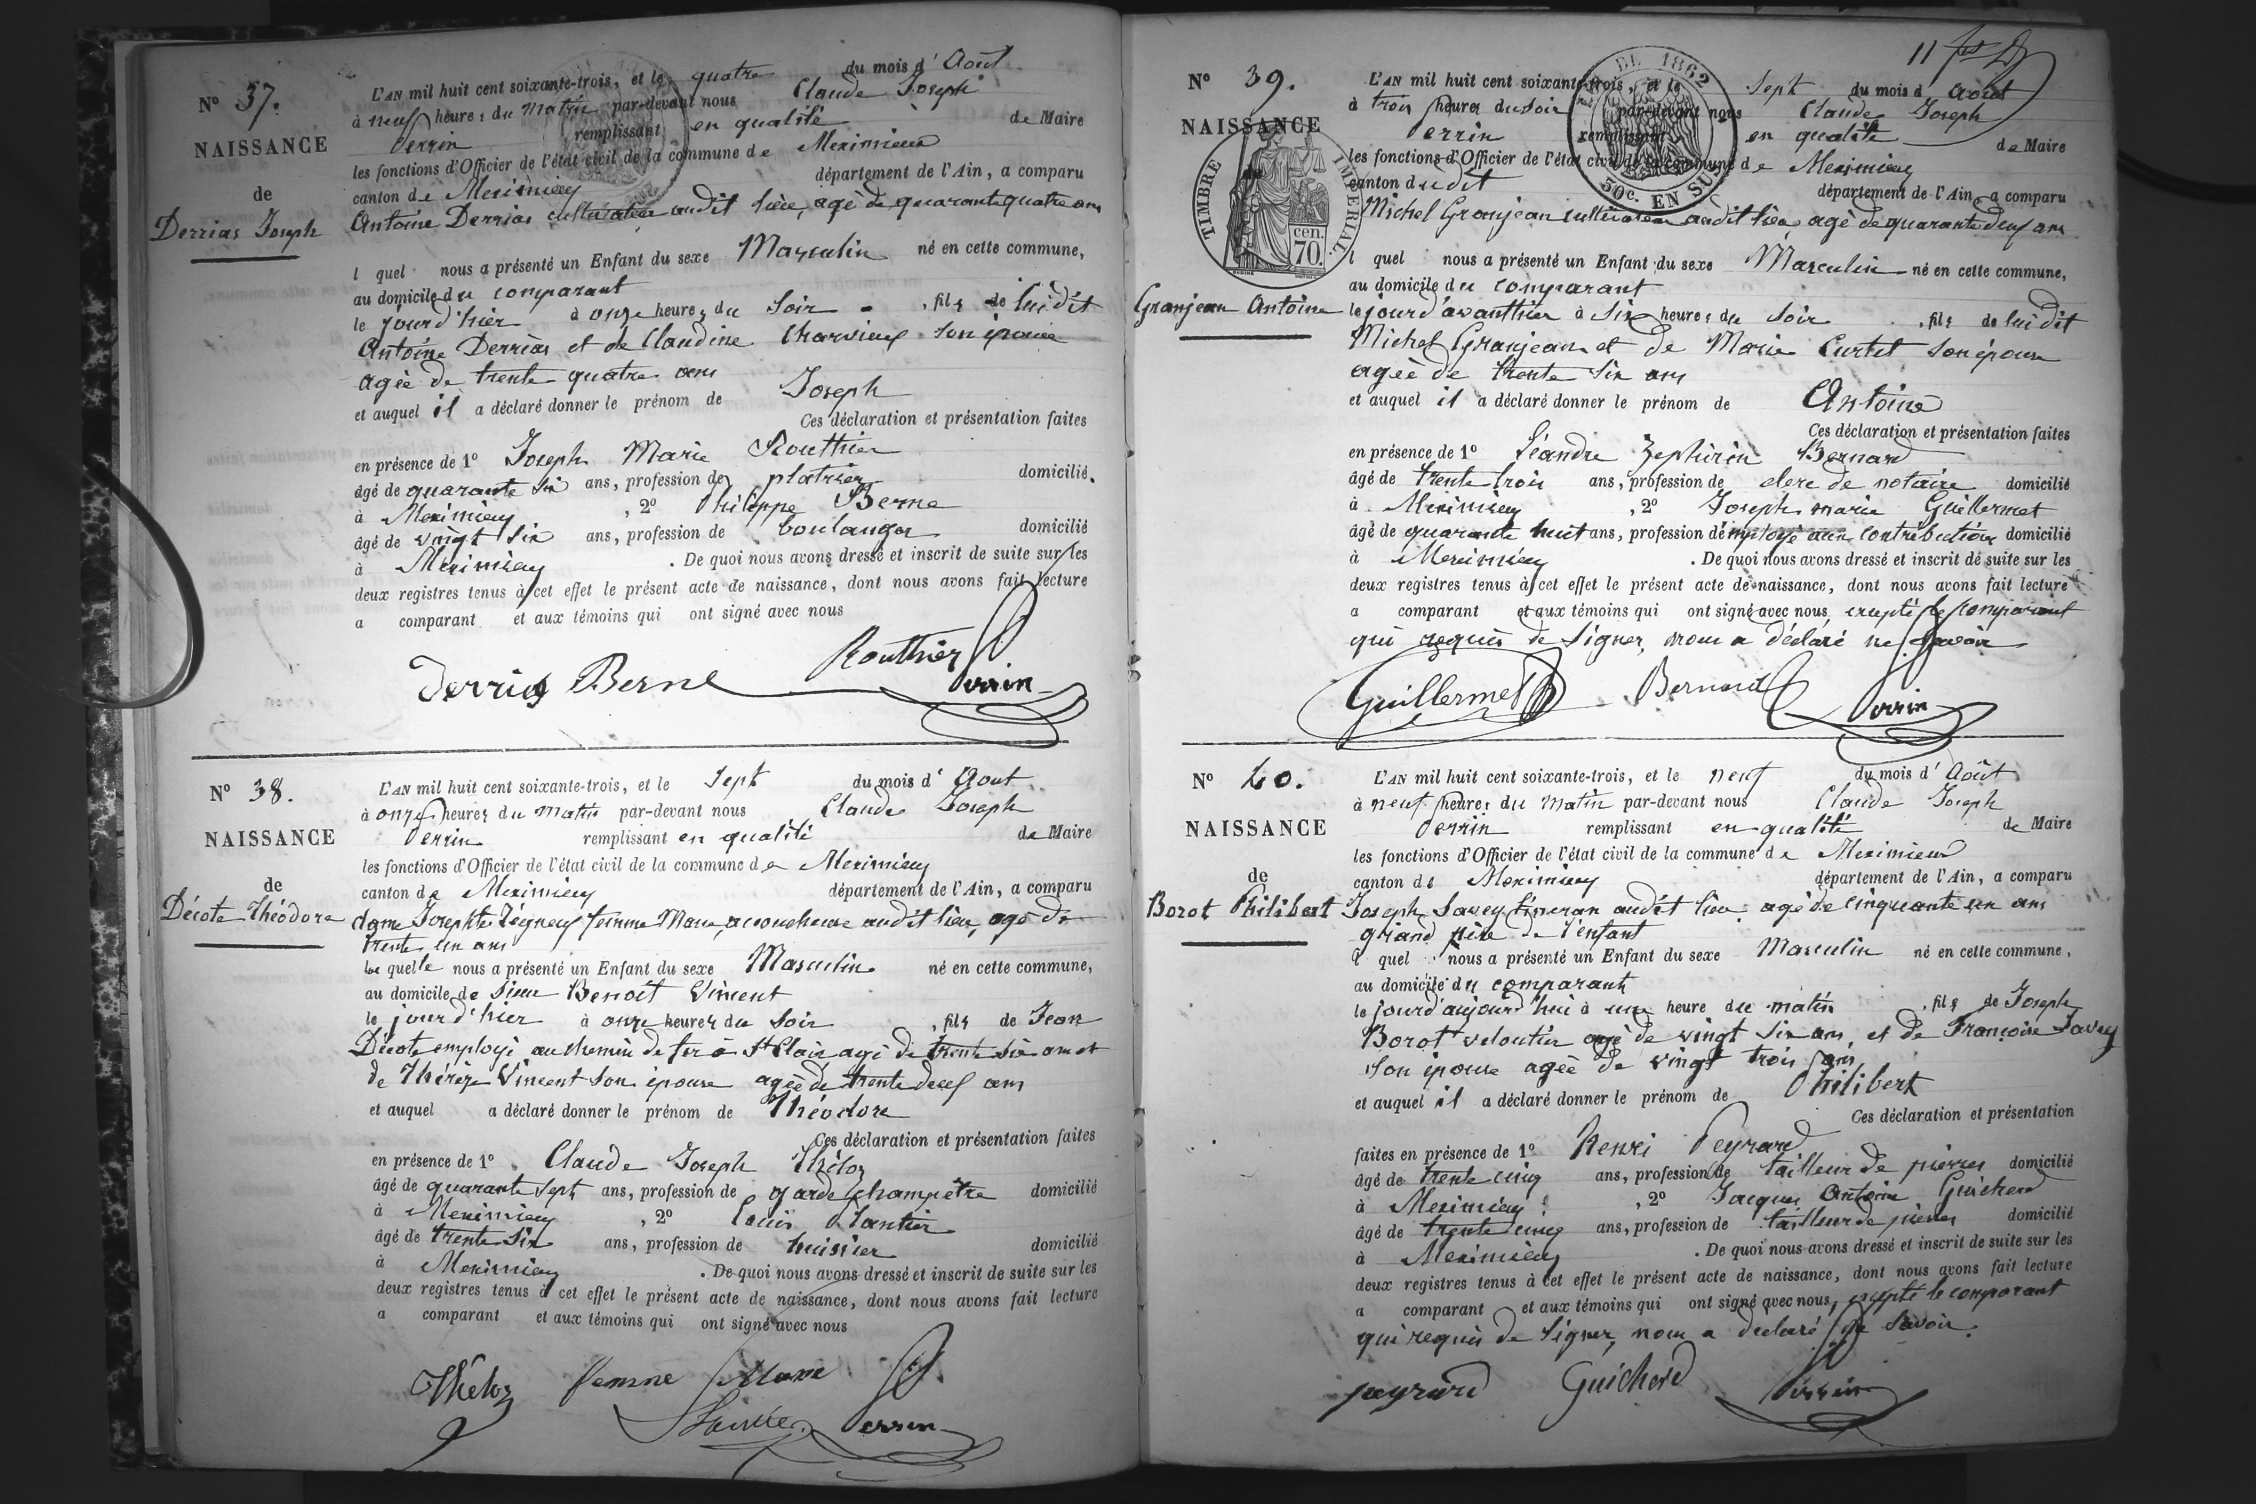 N° 37.
NAISSANCE
de
Derrias Joseph
L'AN mil huit cent soixante-trois, et le quatre du mois d' Août
à neuf heures du matin par-devant nous Claude Joseph
Perrin remplissant en qualité de Maire
les fonctions d'Officier de l'état civil de la commune de Meximieux
canton de Meximieux département de l'Ain, a comparu
Antoine Derrias cultivateur audit lieu, agé de quarante quatre ans
l quel nous a présenté un Enfant du sexe Masculin né en cette commune,
au domicile du comparant
le jourd'hier à onze heures du soir , fils de lui dit
Antoine Derrias et de Claudine Charvieux son épouse
agée de trente quatre ans
et auquel il a déclaré donner le prénom de Joseph
Ces déclaration et présentation faites
en présence de 1° Joseph Marie Routhier
âgé de quarante six ans, profession de platrier domicilié
à Meximieux , 2° Philippe Berne
âgé de vingt six ans, profession de boulanger domicilié
à Meximieux . De quoi nous avons dressé et inscrit de suite sur les
deux registres tenus à cet effet le présent acte de naissance, dont nous avons fait lecture
a comparant et aux témoins qui ont signé avec nous
Derrias Berne Routhier Perrin
N° 38.
NAISSANCE
de
Décote Théodore
L'AN mil huit cent soixante-trois, et le sept du mois d' Aout
à onze heures du matin par-devant nous Claude Joseph
Perrin remplissant en qualité de Maire
les fonctions d'Officier de l'état civil de la commune de Meximieux
canton de Meximieux département de l'Ain, a comparu
dame Josephte femme accoucheuse audit lieu, age de
trente un ans
la quelle nous a présenté un Enfant du sexe Masculin né en cette commune,
au domicile de sieur Benoit Vincent
le jourd'hier à onze heures du soir , fils de Jean
Décote employé au chemin de fer à St Clair agé de trente six ans et
de Thérèze Vincent son épouse agée de trente deux ans
et auquel a déclaré donner le prénom de Théodore
Ces déclaration et présentation faites
en présence de 1° Claude Joseph Théloz
âgé de quarante sept ans, profession de garde champêtre domicilié
à Meximieux , 2° Louis
âgé de trente six ans, profession de huissier domicilié
à Meximieux . De quoi nous avons dressé et inscrit de suite sur les
deux registres tenus à cet effet le présent acte de naissance, dont nous avons fait lecture
a comparant et aux témoins qui ont signé avec nous
Théloz femme
Perrin
11
N° 39.
NAISSANCE
de
TIMBRE IMPERIAL
cen. 70.
Granjean Antoine
EL 1862
50c. EN SUS
L'AN mil huit cent soixante-trois, et le sept du mois d Août
à trois heures du soir par-devant nous Claude Joseph
Perrin remplissant en qualité de Maire
les fonctions d'Officier de l'état civil de la commune de Meximieux
canton dudit département de l'Ain, a comparu
Michel Granjean cultivateur audit lieu, agé de quarante deux ans
l quel nous a présenté un Enfant du sexe Masculin né en cette commune,
au domicile du comparant
le jourd'avanthier à six heures du soir , fils de lui dit
Michel Granjean et de Marie Curtet son épouse
agée de trente six ans
et auquel il a déclaré donner le prénom de Antoine
Ces déclaration et présentation faites
en présence de 1° Léandre Zephirin Bernard
âgé de trente trois ans, profession de clerc de notaire domicilié
à Meximieux , 2° Joseph marie Guillermet
âgé de quarante huit ans, profession d'employé aux contributions domicilié
à Meximieux . De quoi nous avons dressé et inscrit de suite sur les
deux registres tenus à cet effet le présent acte de naissance, dont nous avons fait lecture
a comparant et aux témoins qui ont signé avec nous, excepté le comparant
qui requis de signer, nous a déclaré ne savoir
Guillermet Bernard Perrin
N° 40.
NAISSANCE
de
Borot Philibert
L'AN mil huit cent soixante-trois, et le neuf du mois d' Août
à neuf heures du matin par-devant nous Claude Joseph
Perrin remplissant en qualité de Maire
les fonctions d'Officier de l'état civil de la commune de Meximieux
canton de Meximieux département de l'Ain, a comparu
Joseph Savey audit lieu agé de cinquante un ans
grand père de l'enfant
l quel nous a présenté un Enfant du sexe Masculin né en cette commune,
au domicile du comparant
le jourd'aujourd'hui à une heure du matin , fils de Joseph
Borot veloutier agé de vingt six ans, et de Françoise Savey
son épouse agée de vingt trois ans
et auquel il a déclaré donner le prénom de Philibert
Ces déclaration et présentation
faites en présence de 1° Henri Peyrard
âgé de trente cinq ans, profession de tailleur de pierres domicilié
à Meximieux , 2° Jacques Antoine Guichard
âgé de trente cinq ans, profession de tailleur de pierres domicilié
à Meximieux . De quoi nous avons dressé et inscrit de suite sur les
deux registres tenus à cet effet le présent acte de naissance, dont nous avons fait lecture
a comparant et aux témoins qui ont signé avec nous, excepté le comparant
qui requis de signer, nous a déclaré ne savoir.
peyrard Guichard Perrin